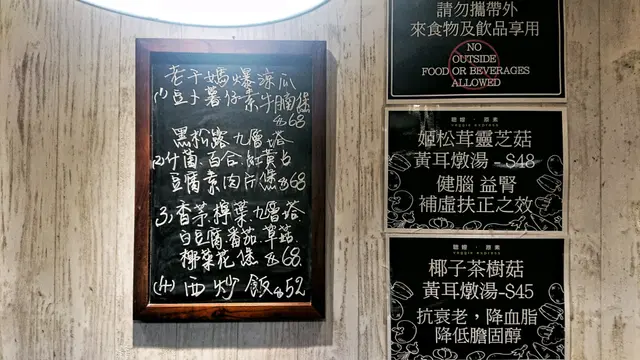 老干媽爆涼瓜
(1) 豆土薯仔素牛腩煲
$68
黑松露九層塔
(2) 什菌.百合.紅黃白
豆腐素肉片煲$68
3, 香茅.檸葉九層塔
白豆腐番茄.草菇.
椰菜花煲 $68
(4) 西炒飯$52
請勿攜帶外
來食物及飲品享用
NO
OUTSIDE
FOOD OR BEVERAGES
ALLOWED
veggie express
姬松茸靈芝菇
黃耳燉湯 - $48
健腦 益腎
補虛扶正之效
veggie express
椰子茶樹菇
黃耳燉湯-$45
抗衰老，降血脂
降低膽固醇